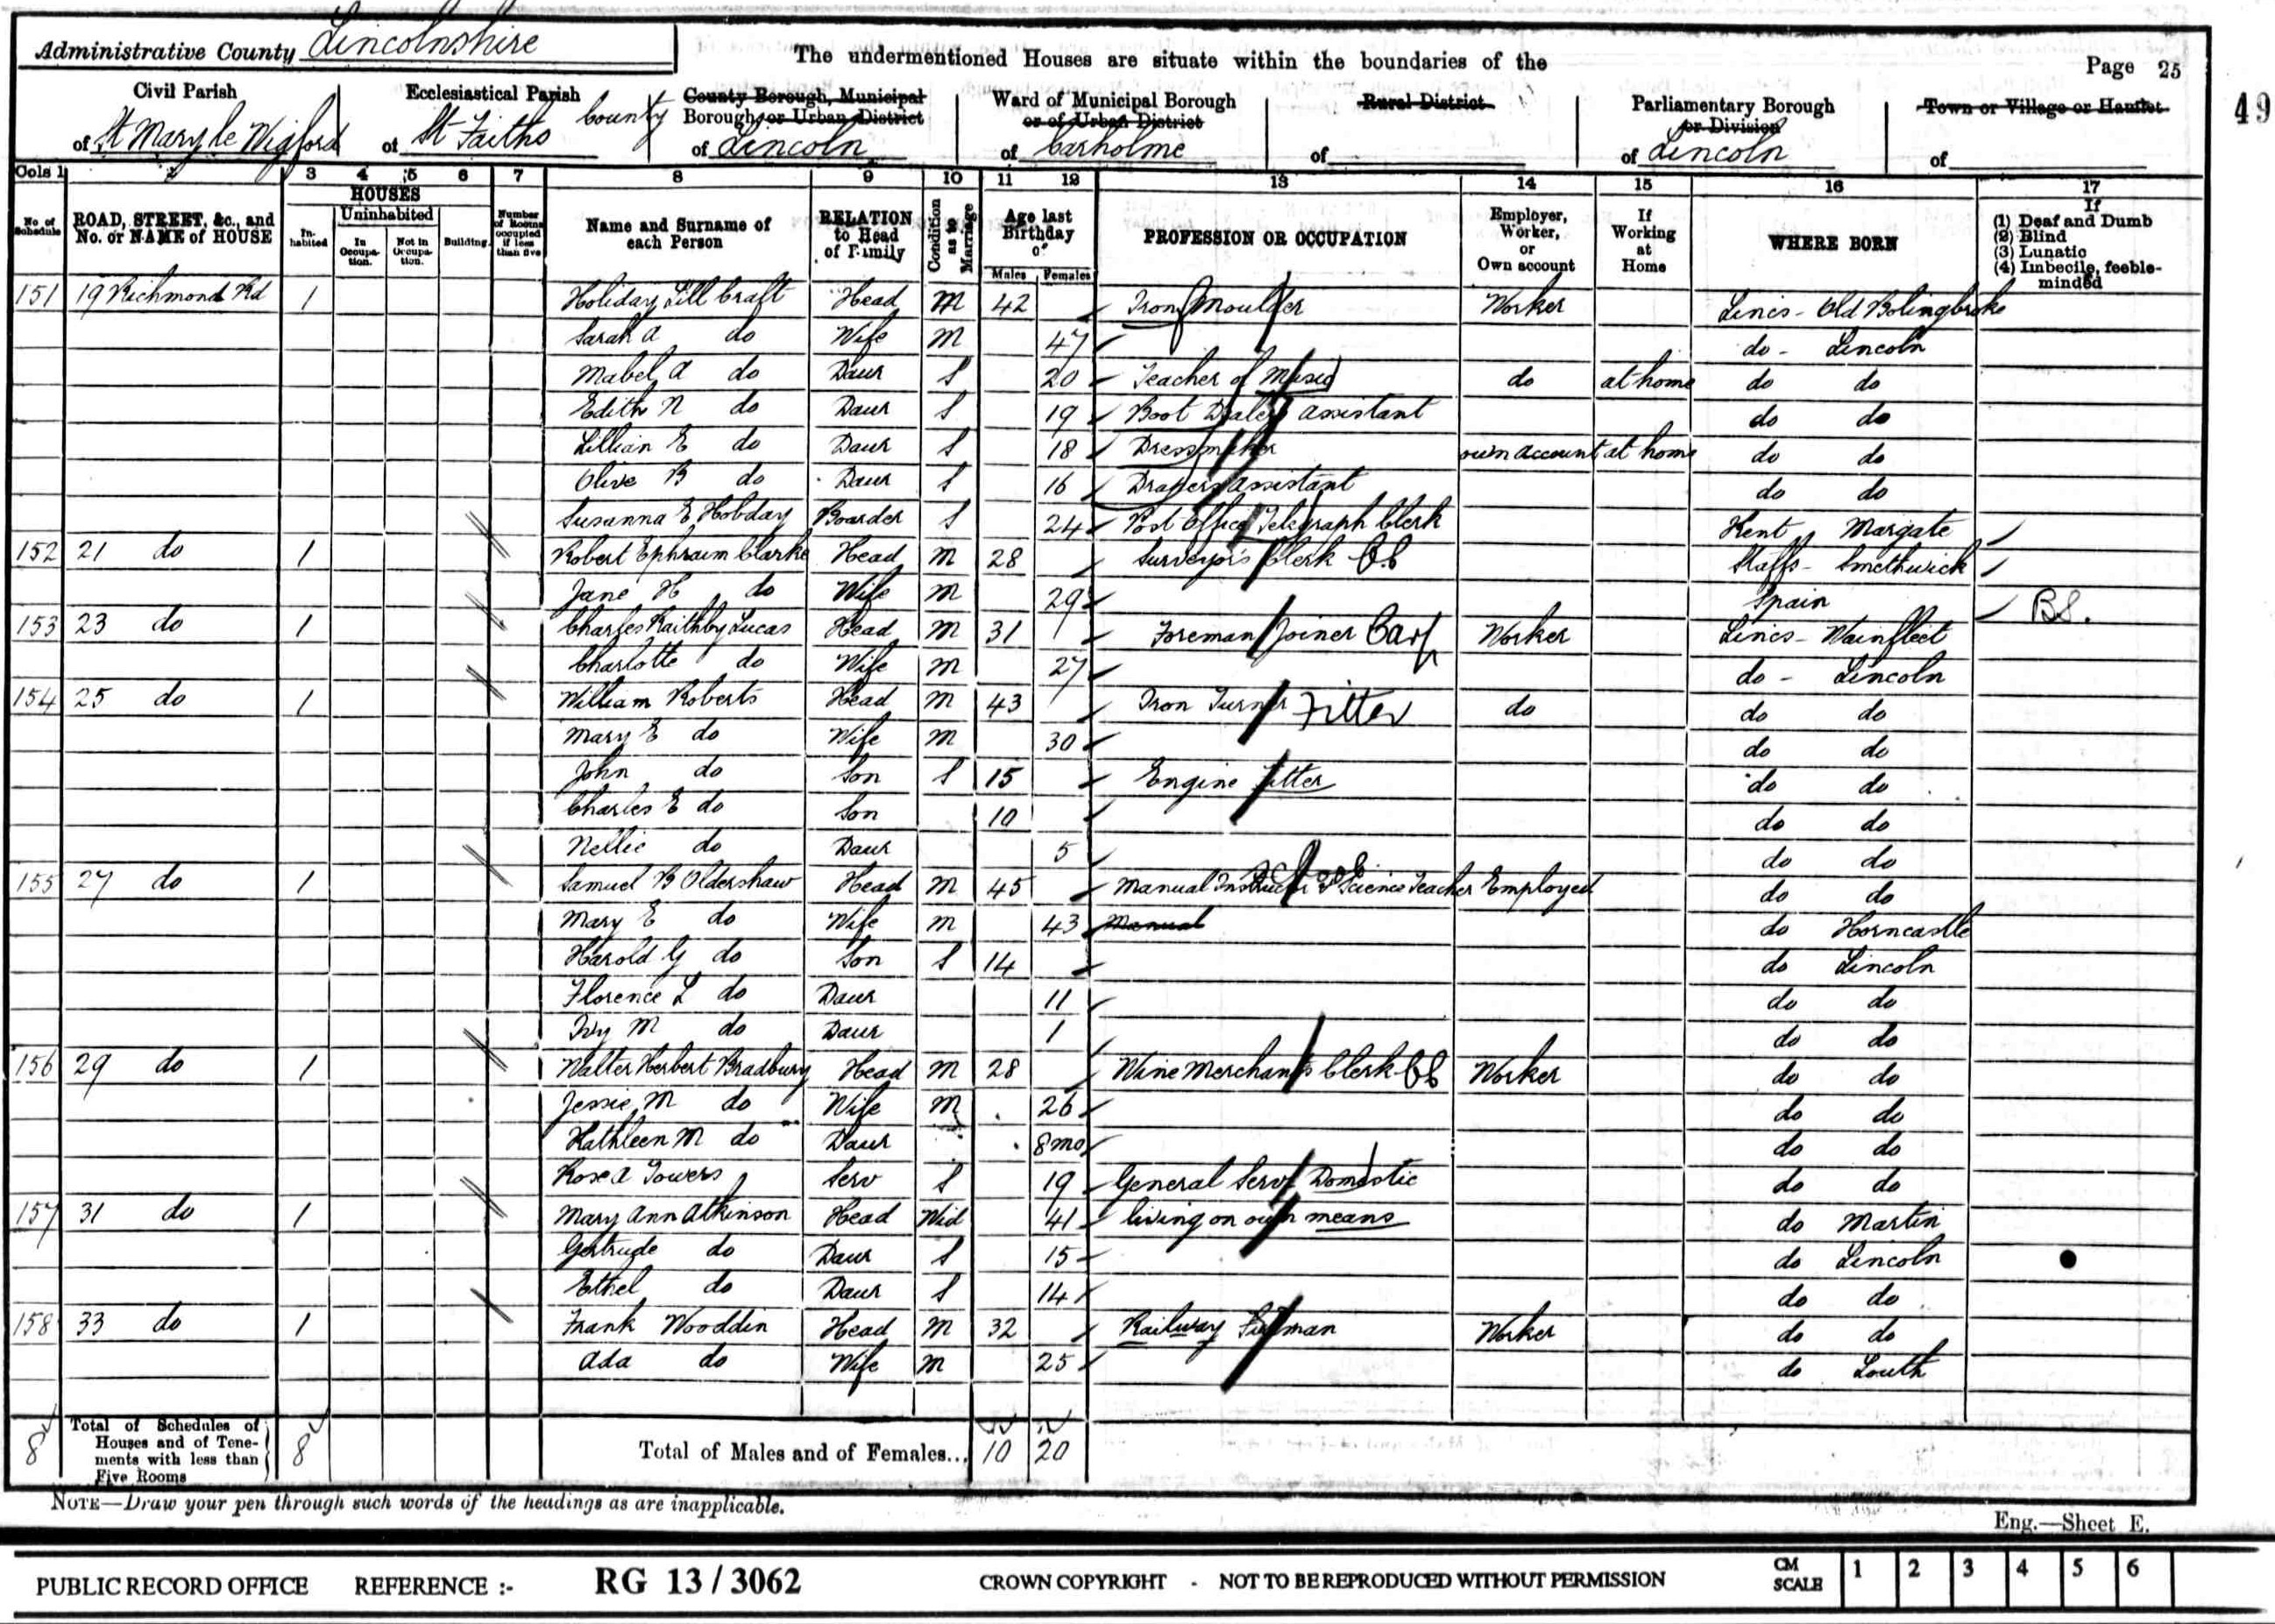 Administrative County Lincolnshire
The undermentioned Houses are situate within the boundaries of the
Page 25
49
Civil Parish of St Mary le Wigford
Ecclesiastical Parish of St Faiths
County Borough, Municipal Borough or Urban District of Lincoln County
Ward of Municipal Borough or of Urban District of Carholme
Rural District of
Parliamentary Borough or Division of Lincoln
Town or Village or Hamlet of
Cols 1 2 3 4 5 6 7 8 9 10 11 12 13 14 15 16 17
No. of Schedule
ROAD, STREET, &c., and No. or NAME of HOUSE
HOUSES
Inhabited
Uninhabited
In Occupation.
Not in Occupation.
Building.
Number of Rooms occupied if less than five
Name and Surname of each Person
RELATION to Head of Family
Condition as to Marriage
Age last Birthday of
Males Females
PROFESSION OR OCCUPATION
Employer, Worker, or Own account
If Working at Home
WHERE BORN
If (1) Deaf and Dumb (2) Blind (3) Lunatic (4) Imbecile, feeble-minded
151 19 Richmond Rd 1 Holiday Lill Craft Head M 42 Iron Moulder Worker Lincs - Old Bolingbroke
Sarah A do Wife M 47 do - Lincoln
Mabel A do Daur S 20 Teacher of Music do at home do do
Edith N do Daur S 19 Boot Dealers assistant do do
Lillian E do Daur S 18 Dressmaker own account at home do do
Olive B do Daur S 16 Drapers assistant do do
Susanna E Hobday Boarder S 24 Post Office Telegraph Clerk Kent Margate
152 21 do 1 Robert Ephraim Clarke Head M 28 Surveyor's Clerk Staffs - Smethwick
Jane H do Wife M 29 Spain B.S.
153 23 do 1 Charles Raithby Lucas Head M 31 Foreman Joiner Carp Worker Lincs - Wainfleet
Charlotte do Wife M 27 do - Lincoln
154 25 do 1 William Roberts Head M 43 Iron Turner Fitter do do do
Mary E do Wife M 30 do do
John do Son S 15 Engine Fitter do do
Charles E do Son 10 do do
Nellie do Daur 5 do do
155 27 do 1 Samuel B Oldershaw Head M 45 Manual Instructor & Science Teacher Employed do do
Mary E do Wife M 43 Manual do Horncastle
Harold G do Son S 14 do Lincoln
Florence L do Daur 11 do do
Ivy M do Daur 1 do do
156 29 do 1 Walter Herbert Bradbury Head M 28 Wine Merchants Clerk Worker do do
Jessie M do Wife M 26 do do
Kathleen M do Daur 8 mo do do
Rose A Towers Serv S 19 General Serv Domestic do do
157 31 do 1 Mary Ann Atkinson Head Wid 41 living on own means do Martin
Gertrude do Daur S 15 do Lincoln
Ethel do Daur S 14 do do
158 33 do 1 Frank Wooddin Head M 32 Railway Fireman Worker do do
Ada do Wife M 25 do Louth
8 Total of Schedules of Houses and of Tenements with less than Five Rooms 8 Total of Males and of Females... 10 20
NOTE—Draw your pen through such words of the headings as are inapplicable.
Eng.—Sheet E.
PUBLIC RECORD OFFICE REFERENCE :- RG 13 / 3062 CROWN COPYRIGHT - NOT TO BE REPRODUCED WITHOUT PERMISSION CM SCALE 1 2 3 4 5 6